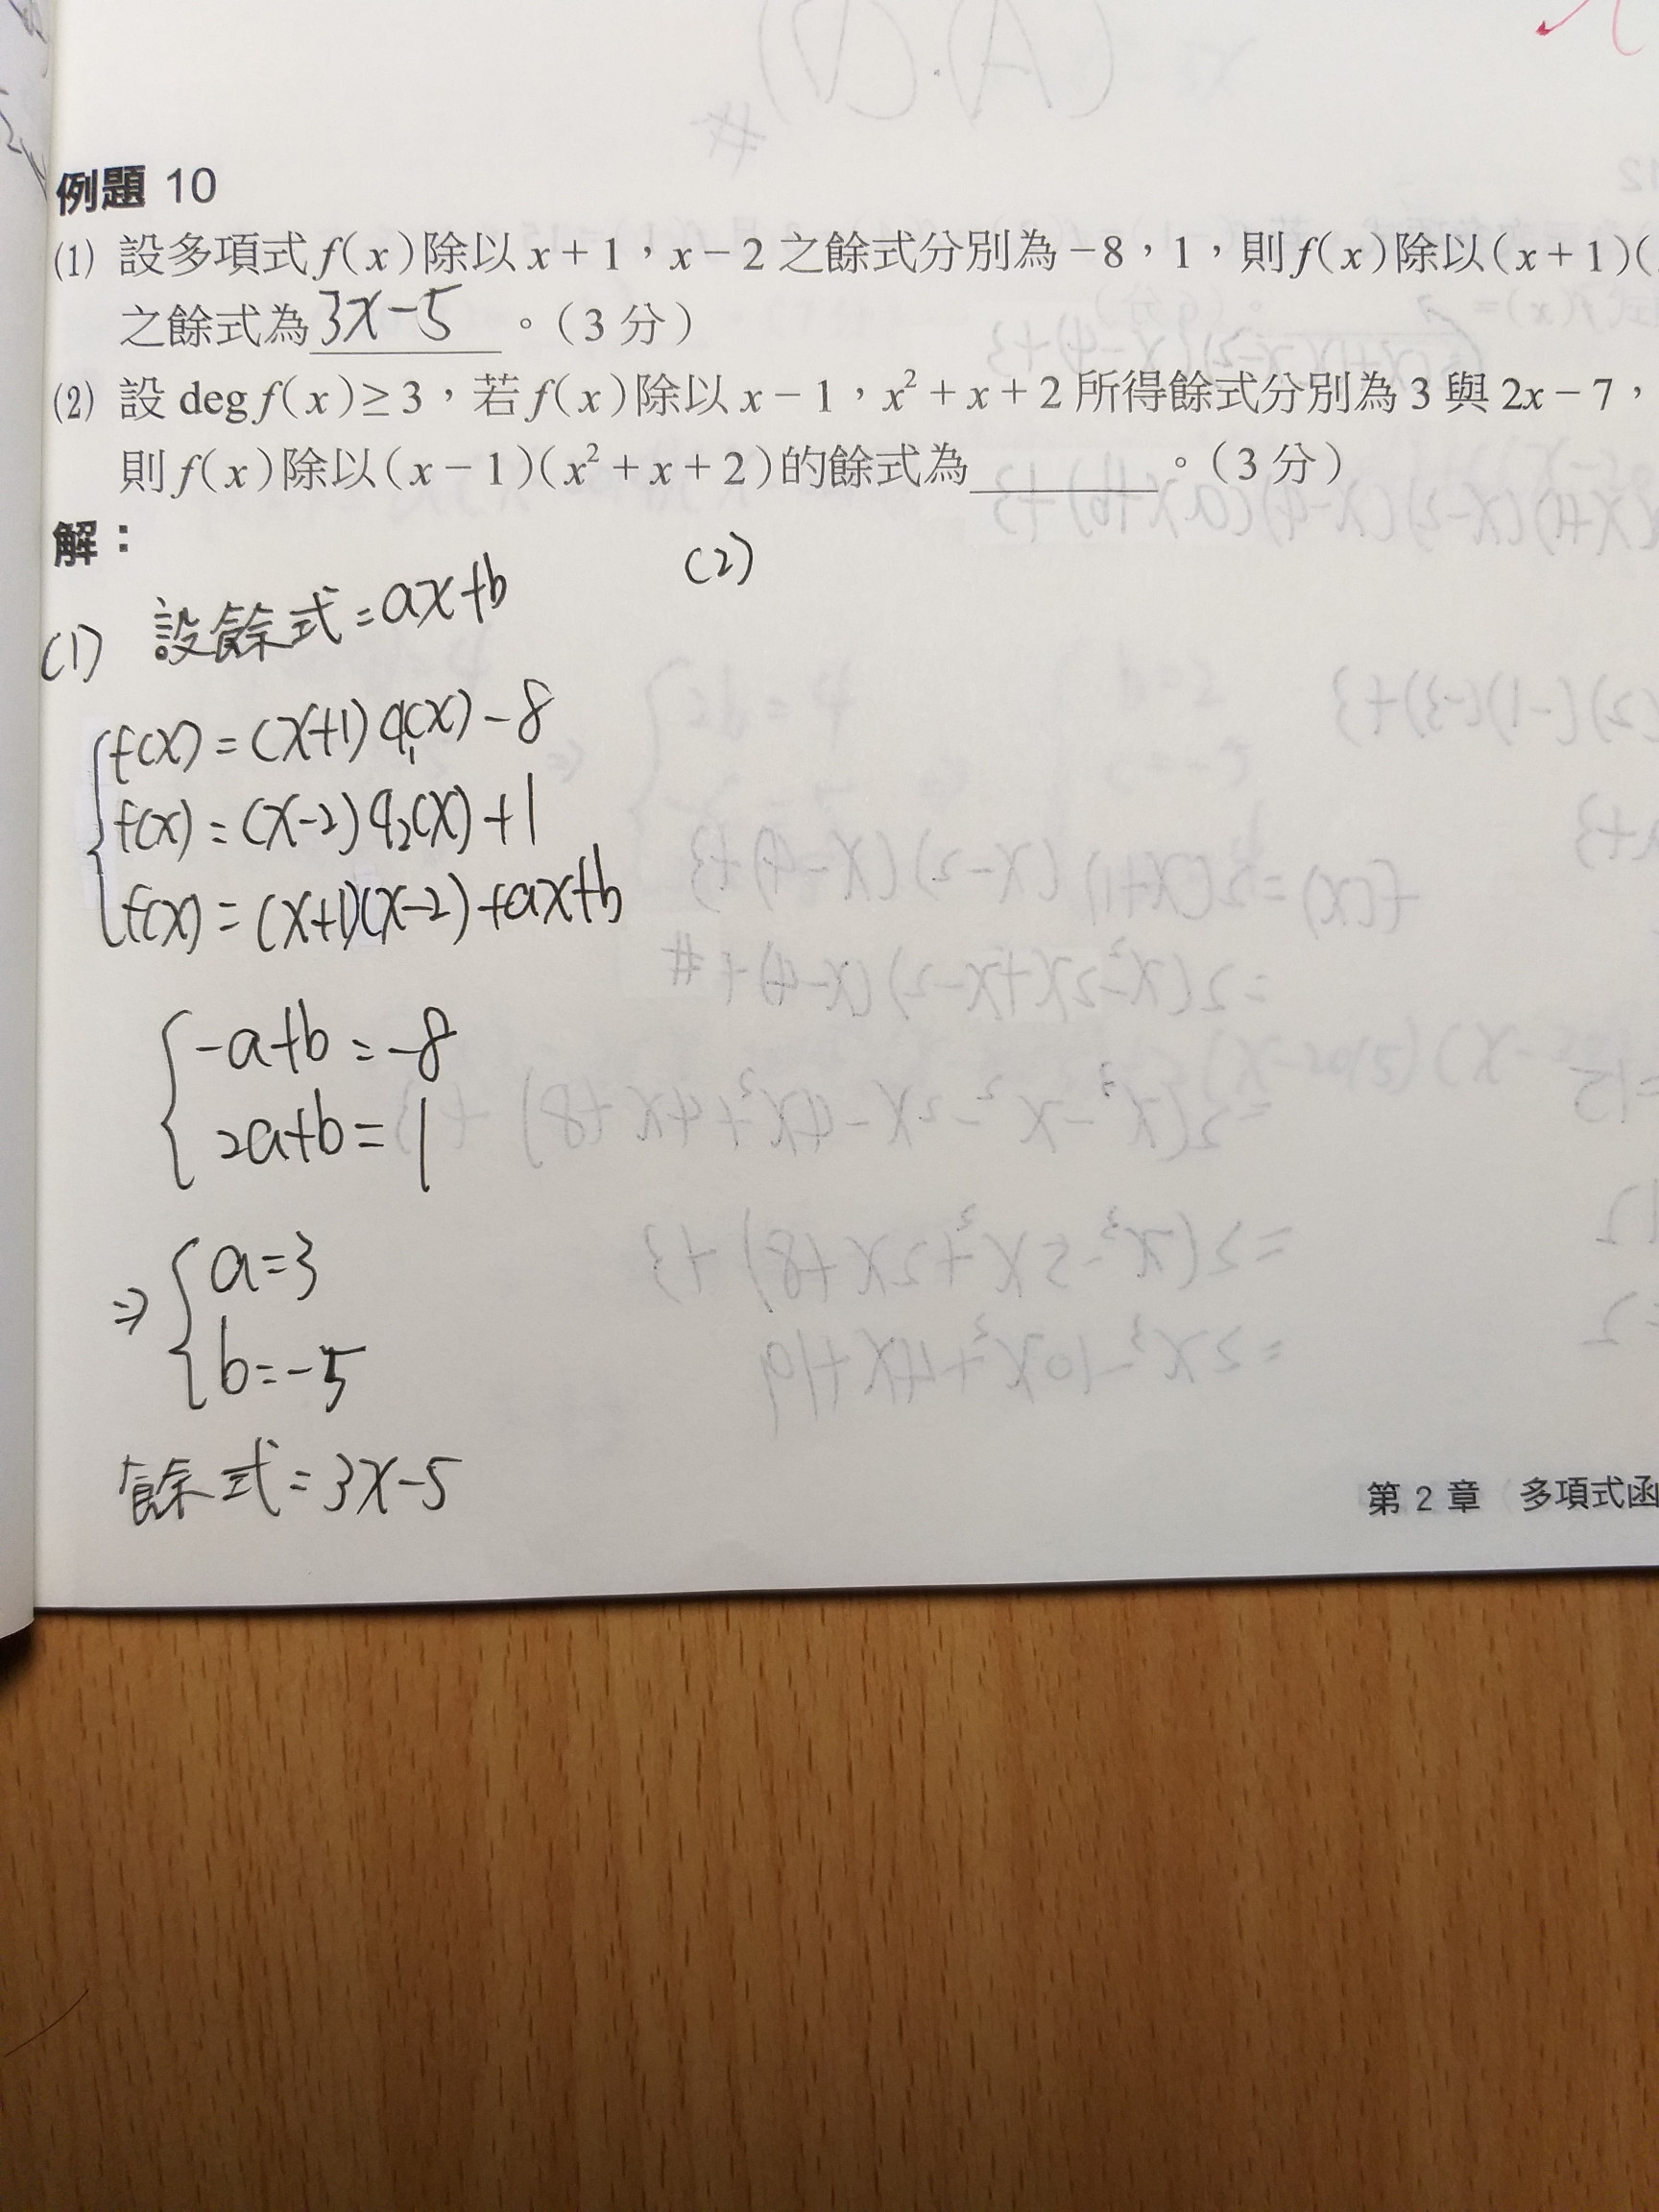 例題 10
(1) 設多項式 f(x) 除以 x+1，x−2 之餘式分別為 −8，1，則 f(x) 除以 (x+1)(
之餘式為 3x-5 。（3 分）
(2) 設 deg f(x) ≥ 3，若 f(x) 除以 x−1，x²+x+2 所得餘式分別為 3 與 2x−7，
則 f(x) 除以 (x−1)(x²+x+2) 的餘式為 ______ 。（3 分）
解：
(1) 設餘式=ax+b
f(x) = (x+1) q₁(x) - 8
f(x) = (x-2) q₂(x) + 1
f(x) = (x+1)(x-2)+ax+b
-a+b = -8
2a+b = 1
⇒ a=3
b=-5
餘式=3x-5
(2)
第 2 章 多項式函